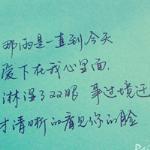 那雨是一直到今天
落下在我心里面
淋湿了双眼 事过境迁
才清晰的看见你的脸